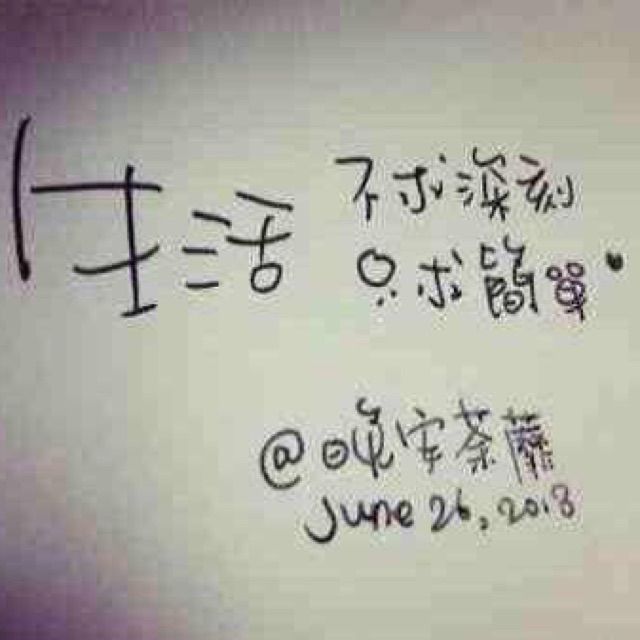 生活
不求深刻
只求简單.
@晚安荼蘼
June 26, 2013